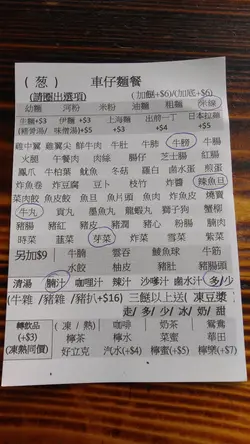 ( 葱 ) 車仔麵餐
(請圈出選項) (加餸+$6)/(加底+$6)
幼麵 河粉 米粉 油麵 粗麵 米線
牛麵+$3 伊麵+$3 上海麵 出前一丁 日本拉麵
(豬骨湯/ 味噌湯+$5) +$3 +$4 +$5 +$5
雞牛翼 雞翼尖 鮮牛肉 牛肚 牛肺 牛膀
火腿 午餐肉 肉絲 腸仔 芝士腸 紅腸
鳳爪 牛柏葉 魷魚 冬菇 蘿白 鹵水蛋 煎蛋
炸魚卷 炸豆腐 豆卜 枝竹 炸醬 辣魚旦
菜肉餃 魚皮餃 魚旦 魚片頭 魚肉 炸魚皮 燒賣
牛丸 貢丸 墨魚丸 龍蝦丸 獅子狗 蟹柳
豬腸 豬紅 豬皮 豬潤 豬心 粉腸 腩肉
時菜 韮菜 芽菜 炸菜 雪菜 紫菜
另加$9 牛腩 雲吞 鯪魚球 牛筋
水餃 柚皮 豬肚 豬腸頭
清湯 腩汁 咖喱汁 辣汁 沙嗲汁 鹵水汁 多/少
(牛雜 /豬雜 /豬扒+$16) 三餸以上送( 凍豆漿
走/ 多/ 少/ 冰/ 奶/ 甜
轉飲品 ( 凍 / 熱 ) 咖啡 奶茶 鴛鴦
(+$3) 檸茶 檸水 菜蜜 華田
(凍熱同價) 好立克 汽水(+$4) 檸蜜(+$5) 檸樂(+$7)